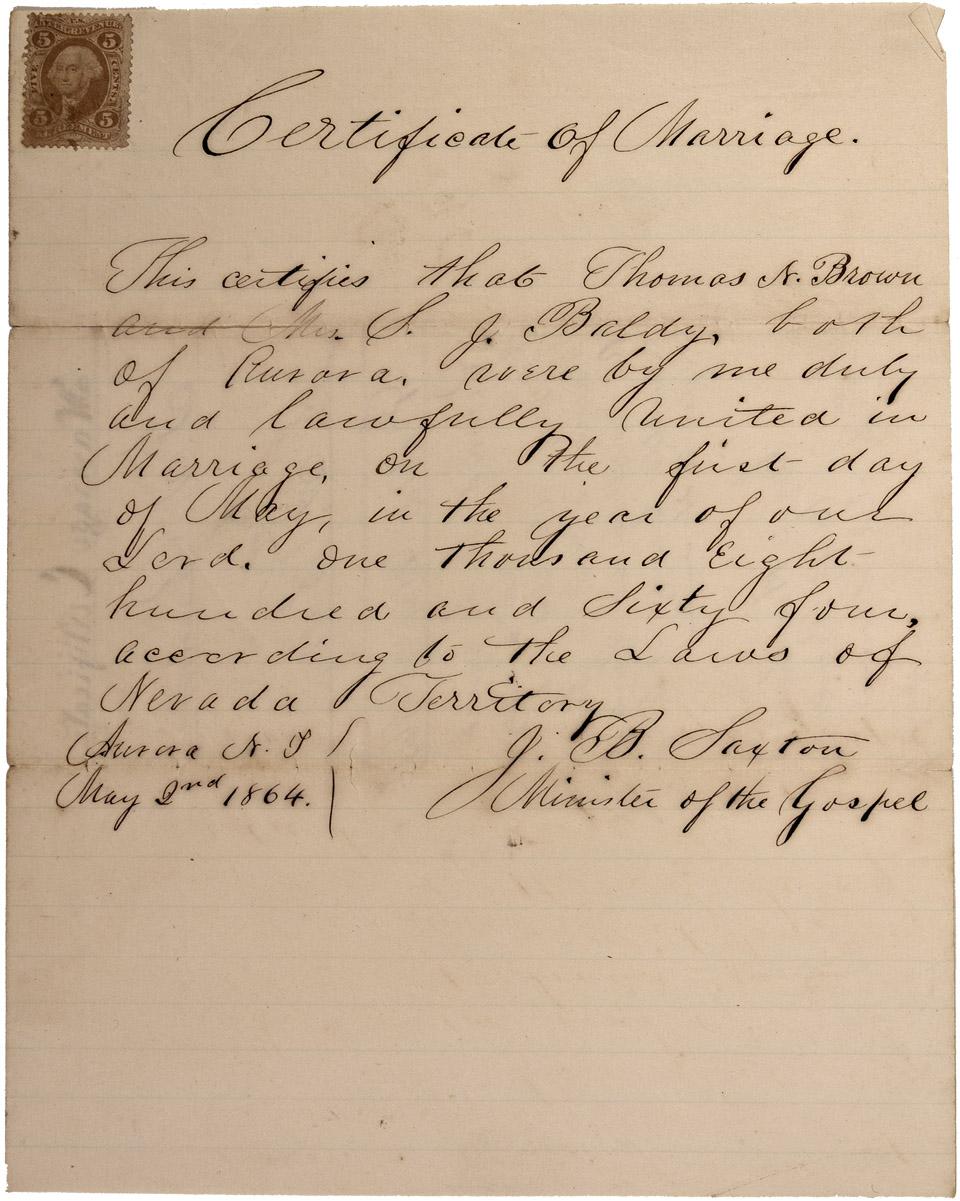 U.S.
INTER. REVENUE
5 5
FIVE CENTS
5 5
AGREEMENT
Certificate of Marriage.
This certifies that Thomas N. Brown
and Mrs. S. J. Baldy, both
of Aurora, were by me duly
and lawfully United in
Marriage, on the first day
of May, in the year of our
Lord. One thousand Eight
hundred and Sixty four,
according to the Laws of
Nevada Territory
Aurora N. T
May 2nd 1864.
J. B. Saxton
Minister of the Gospel